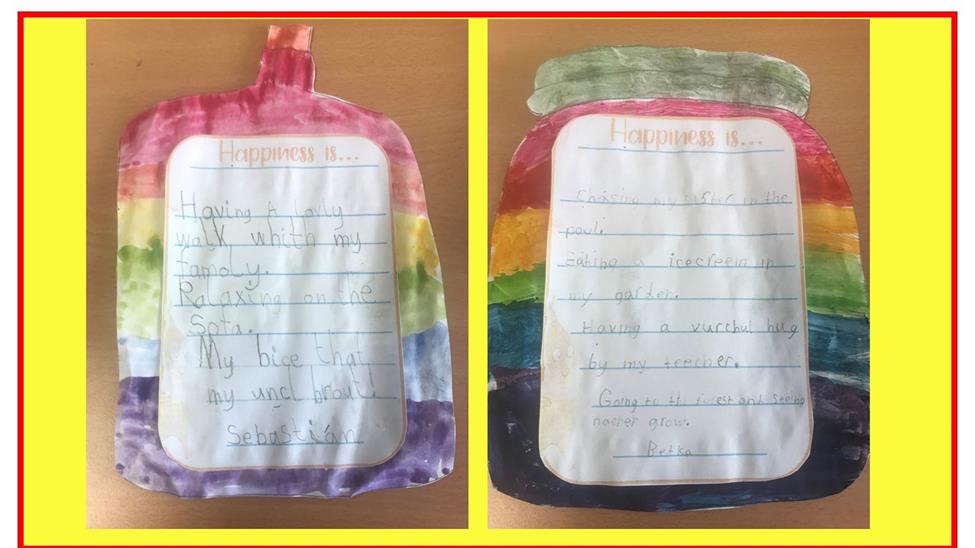 Happiness is...
Having a lovly
walk whith my
famoly.
Ralaxing on the
Sofa.
My bice that
my uncl brout!
Sebastián
Happiness is...
Chasing my sister in the
poul.
Eating a icecreem in
my garden.
Having a vurchul hug
by my teecher.
Going to the forest and seeing
nacher grow.
Betka